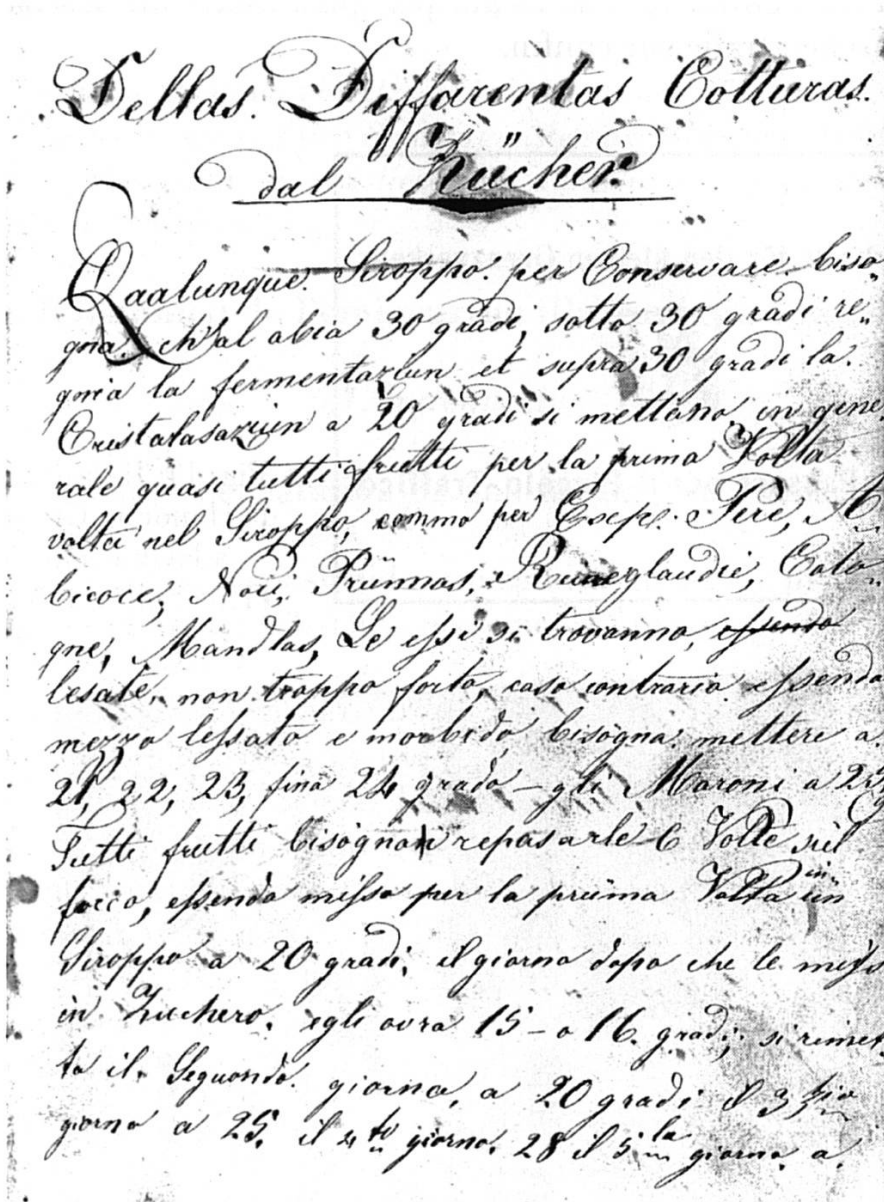 Dellas Differentas Cotturas.
dal Zücher.
Qaalunque Siroppo per Conservare biso„
gna. ch'al abia 30 gradi, sotto 30 gradi re„
gnia la fermentaziun et supra 30 gradi la
Cristalasaziun a 20 gradi si mettano in gene„
rale quasi tutti frutti per la prima Volta
volta nel Siroppo, commo per Esep. Peri, A„
bicoce, Noci, Prünnas, Reineglaudie, Coto„
gne, Mandlas, Se essi si trovanno, essendo
lesate, non troppo forto, caso contrario essendo
mezzo lessato e morbido bisogna mettere a
21, 22, 23, fina 24 grado – gli Maroni a 25
Tutti frutti bisognan repasarle 6 Volte sül
foco, essendo misso per la prüma Volta in
Siroppo a 20 gradi; il giorno dopo che le miss
in Zuchero. egli avra 15 – o 16. gradi; si rimet„
ta il Seguondo giorno, a 20 gradi il 3 tio
giorno a 25. il 4 to giorno. 28 il 5 la giorno. a